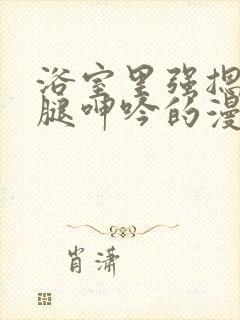 浴室里强揌
腿呻吟的漫
肖潇